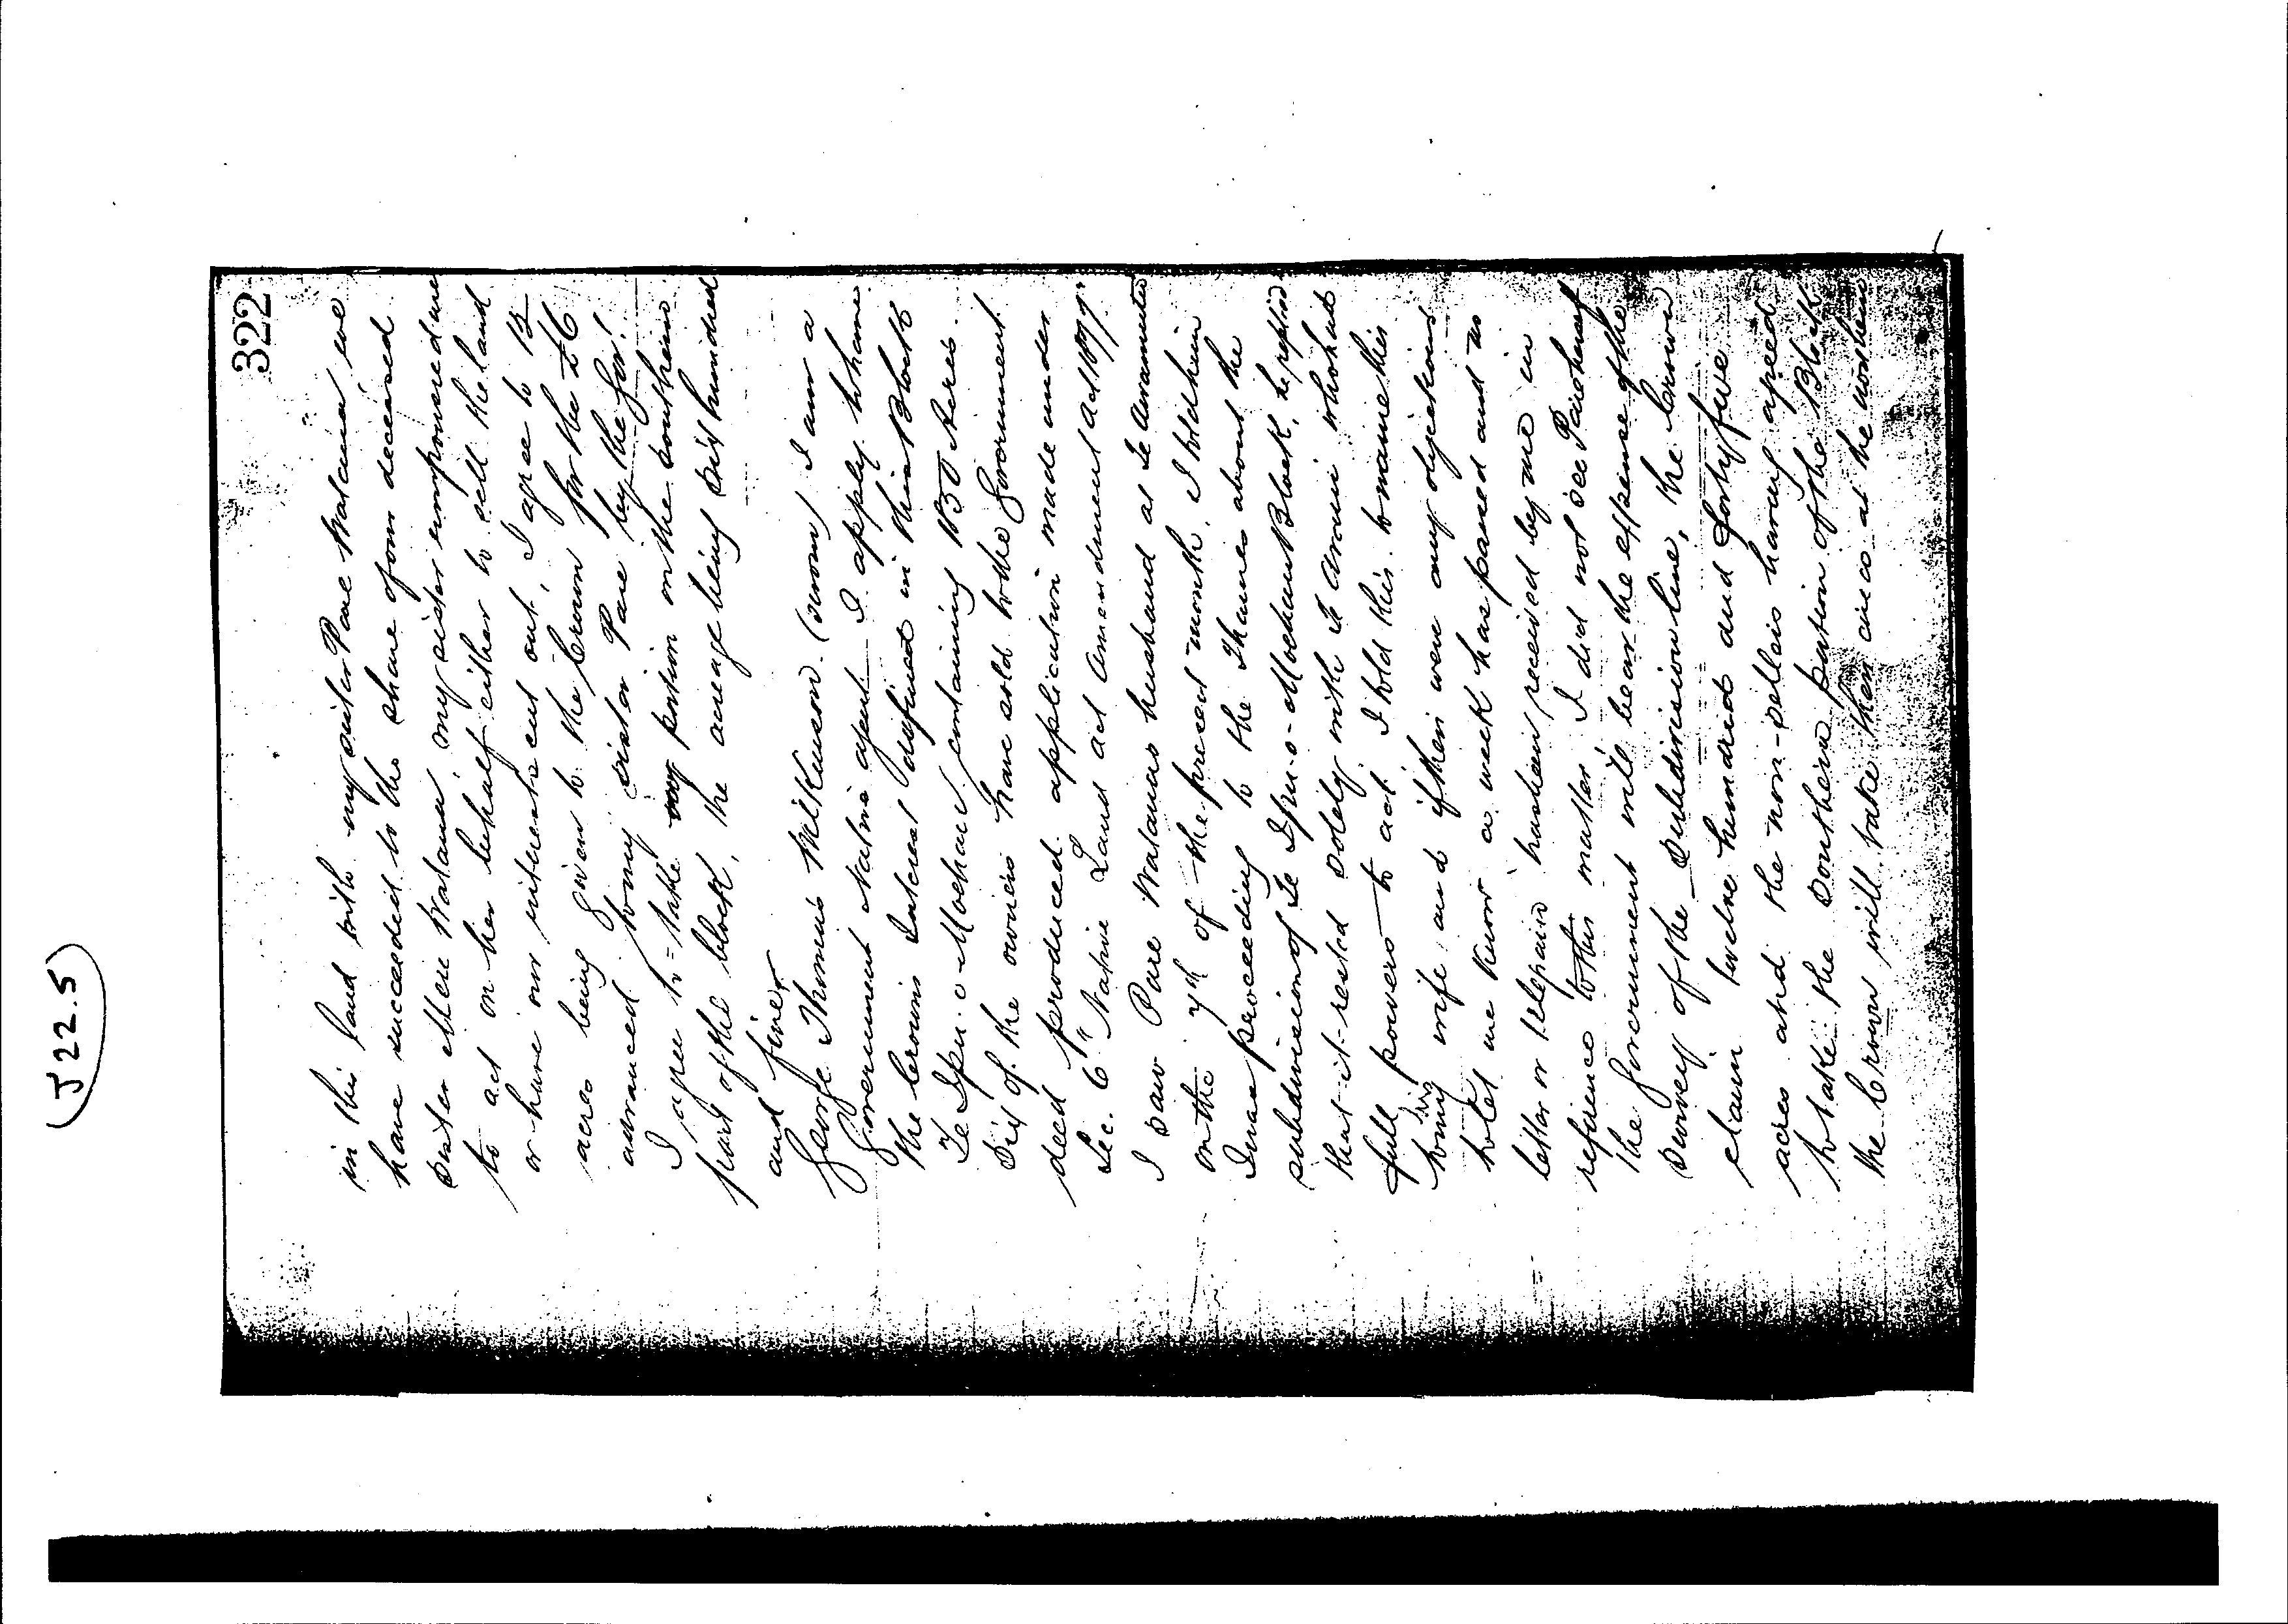 322
in this land with my sister Pare Watana we
have succeeded to the share of our deceased
sister Mere Watana my sister empowered me
to act on her behalf either to sell the land
or have our interests cut out, I agree to 12
acres being given to the Crown for the £6
advanced to my sister Pare by the Gov!
I agree to take portion on the southern
part of the block, the acreage being six hundred
and five.
George Thomas Wilkinson (sworn) I am a
Government Native agent I apply to have
the Crowns Interest defined in this Block
Te Ipu-o-Moehau containing 1850 Acres.
Six of the owners have sold to the Government
deed produced application made under
Sec. 6" Native Land act Amendment Act 1877.
I saw Pare Watanas husband at Te Awamutu
on the 7th of the present month, I told him
I was proceeding to the Thames about the
subdivision of Te Ipu-o-Moehau Block, he replied
that it rested solely with who had
full powers to act. I told this to
his wife and if there were any objections
to let me know a week has passed and no
letter or telegram has been received by me in
reference to this matter I did not see
the Government will bear the expense of the
survey of the subdivision line, the Crown
claim twelve hundred and forty five
acres and the non-sellers having agreed
to take the Southern portion of the Block
the Crown will take their area at the northern
(J22.5)